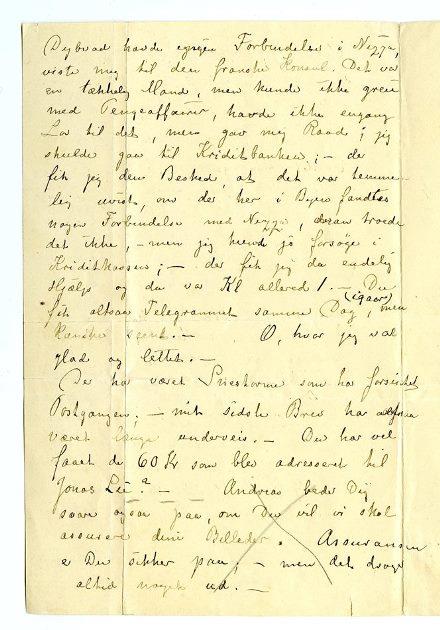 Dybvad havde ingen Forbindelse i Nizza,
viste mig til den franske Konsul. Det var
en tækkelig Mand, men kunde ikke greie
med Pengeaffærer, havde ikke engang
Lov til det, men gav mig Raad; jeg
skulde gaa til Kreditbanken; – der
fik jeg den Besked, at det var temme-
lig uvist, om der her i Byen fandtes
nogen Forbindelse med Nizza, troede
det ikke, – men jeg kunde jo forsøge i
Kreditkassen; – der fik jeg da endelig
Hjælp og da var Kl allered 1. – Du
(igaar)
fik altsaa Telegrammet samme Dag, men
kanske seent. – O, hvor jeg var
glad og lettet. –
Der ha været Sneestorme som ha forsinket
Postgangen; – mit sidste Brev har
været længe underveis. – Du har vel
faaet de 60 Kr som blev adresseret til
Jonas Lie? – Andreas beder Dig
svare ogsaa paa, om Du vil vi skal
assurere dine Billeder. Assurancen
e Du sikker paa; – men det drager
altid noget ud. –